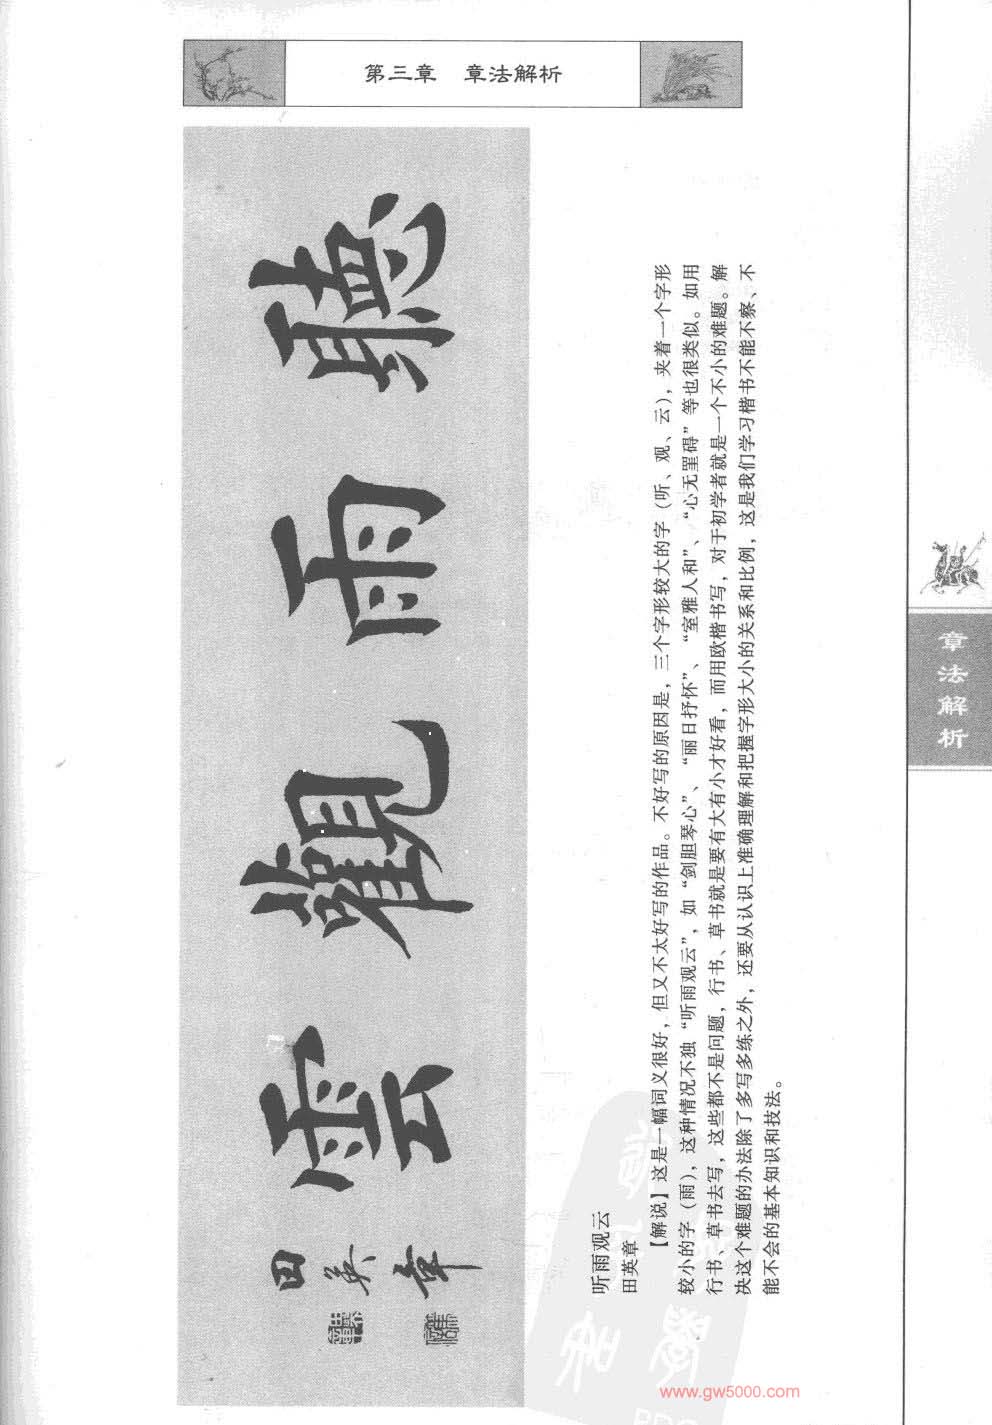 第三章 章法解析
聽雨觀雲
田英章
听雨观云
田英章
【解说】这是一幅词义很好，但又不太好写的作品。不好写的原因是，三个字形较大的字（听、观、云），夹着一个字形
较小的字（雨），这种情况不独“听雨观云”，如“剑胆琴心”、“丽日抒怀”、“室雅人和”、“心无罣碍”等也很类似。如用
行书、草书去写，这些都不是问题，行书、草书就是要有大有小才好看，而用欧楷书写，对于初学者就是一个不小的难题。解
决这个难题的办法除了多写多练之外，还要从认识上准确理解和把握字形大小的关系和比例，这是我们学习楷书不能不察、不
能不会的基本知识和技法。
章法解析
www.gw5000.com